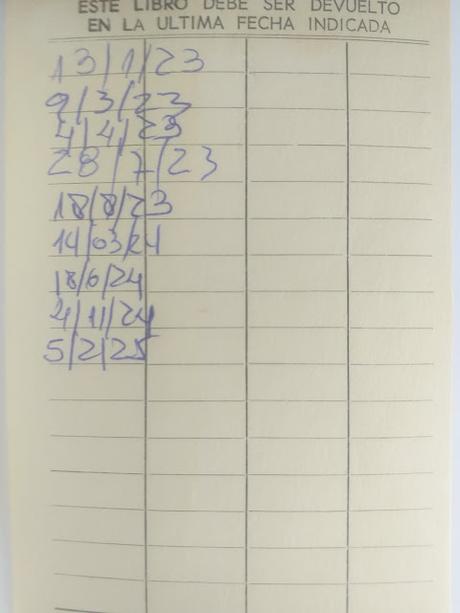 ESTE LIBRO DEBE SER DEVUELTO
EN LA ULTIMA FECHA INDICADA
13/1/23
9/3/23
4/4/23
28/7/23
18/8/23
14/03/24
18/6/24
4/11/24
5/2/25